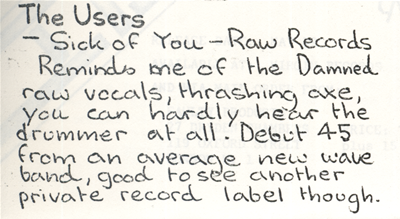 The Users
- Sick of You - Raw Records
Reminds me of the Damned
raw vocals, thrashing axe,
you can hardly hear the
drummer at all. Debut 45
from an average new wave
band, good to see another
private record label though.